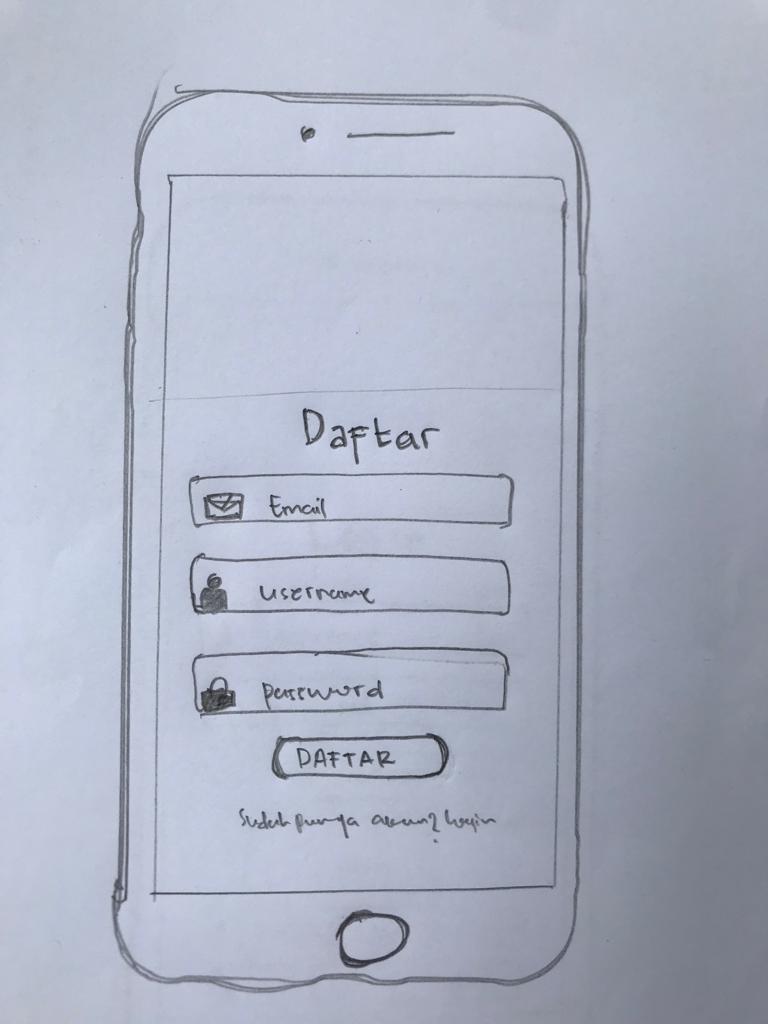 Daftar
Email
username
password
DAFTAR
Sudah punya akun? login